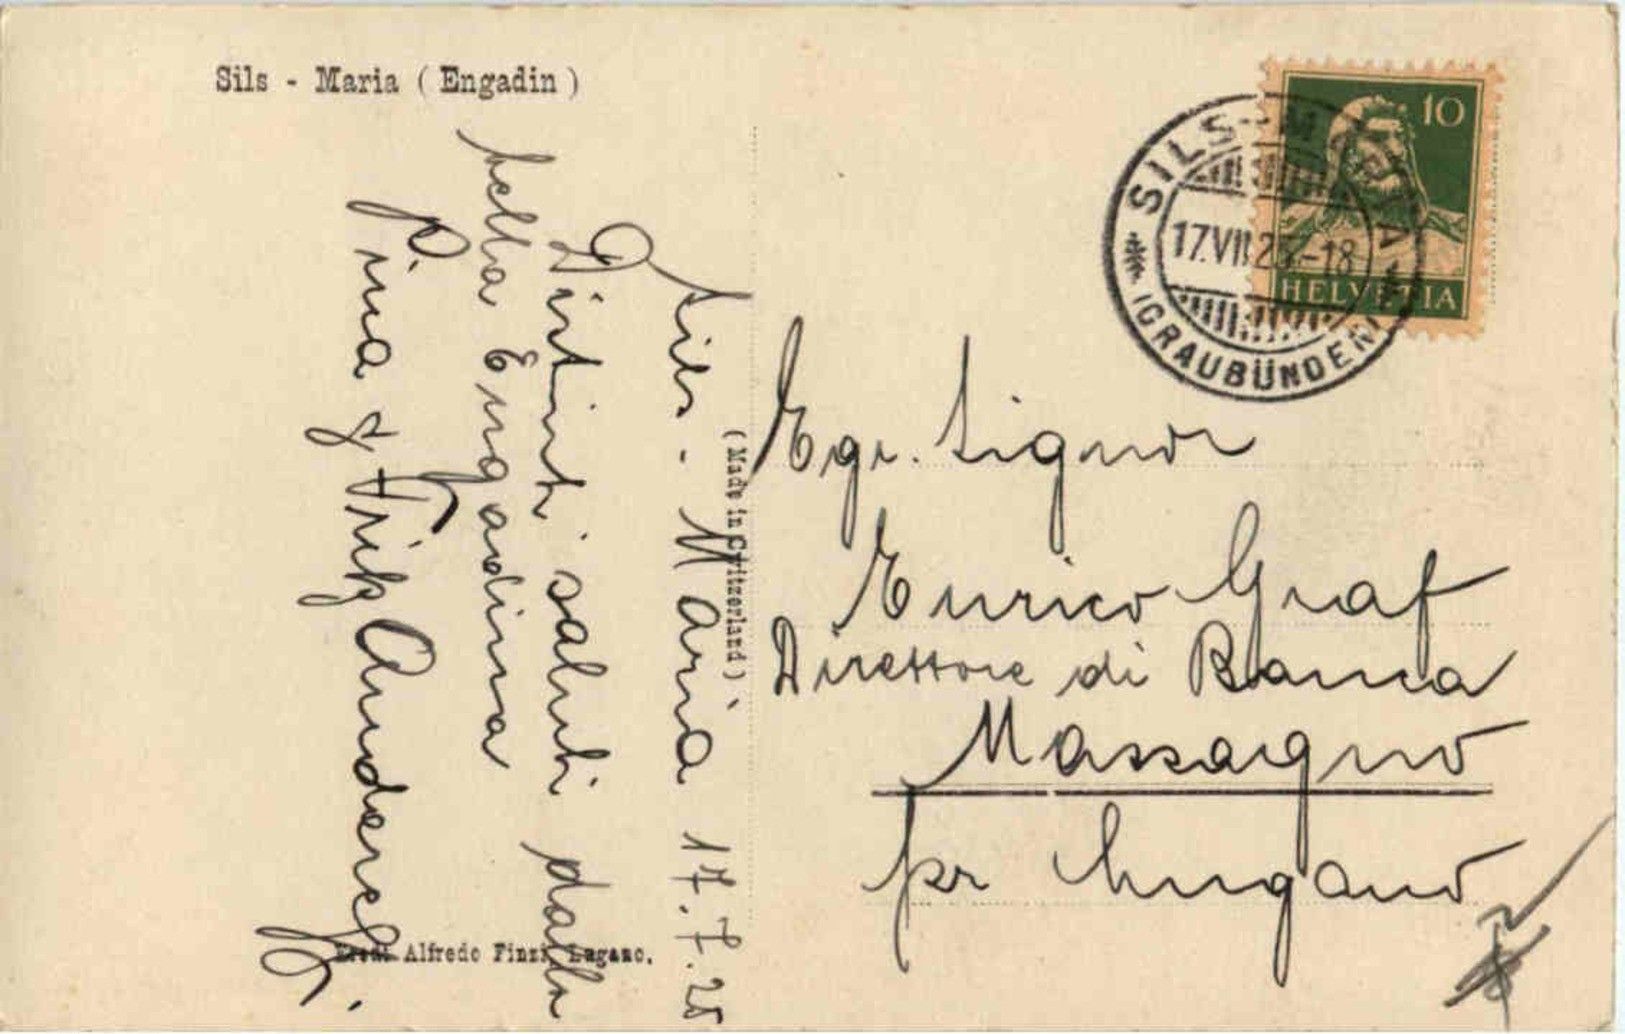 Sils - Maria ( Engadin )
Sils - Maria 17.7.25
Distinti saluti dalla
bella Engadina
Pina & Fritz Anderegg.
( Made in Switzerland )
Eredi Alfredo Finzi, Lugano.
10
HELVETIA
SILS-MARIA
17.VII.25.-18
(GRAUBÜNDEN)
Egr. Signor
Enrico Graf
Direttore di Banca
Massagno
pr Lugano